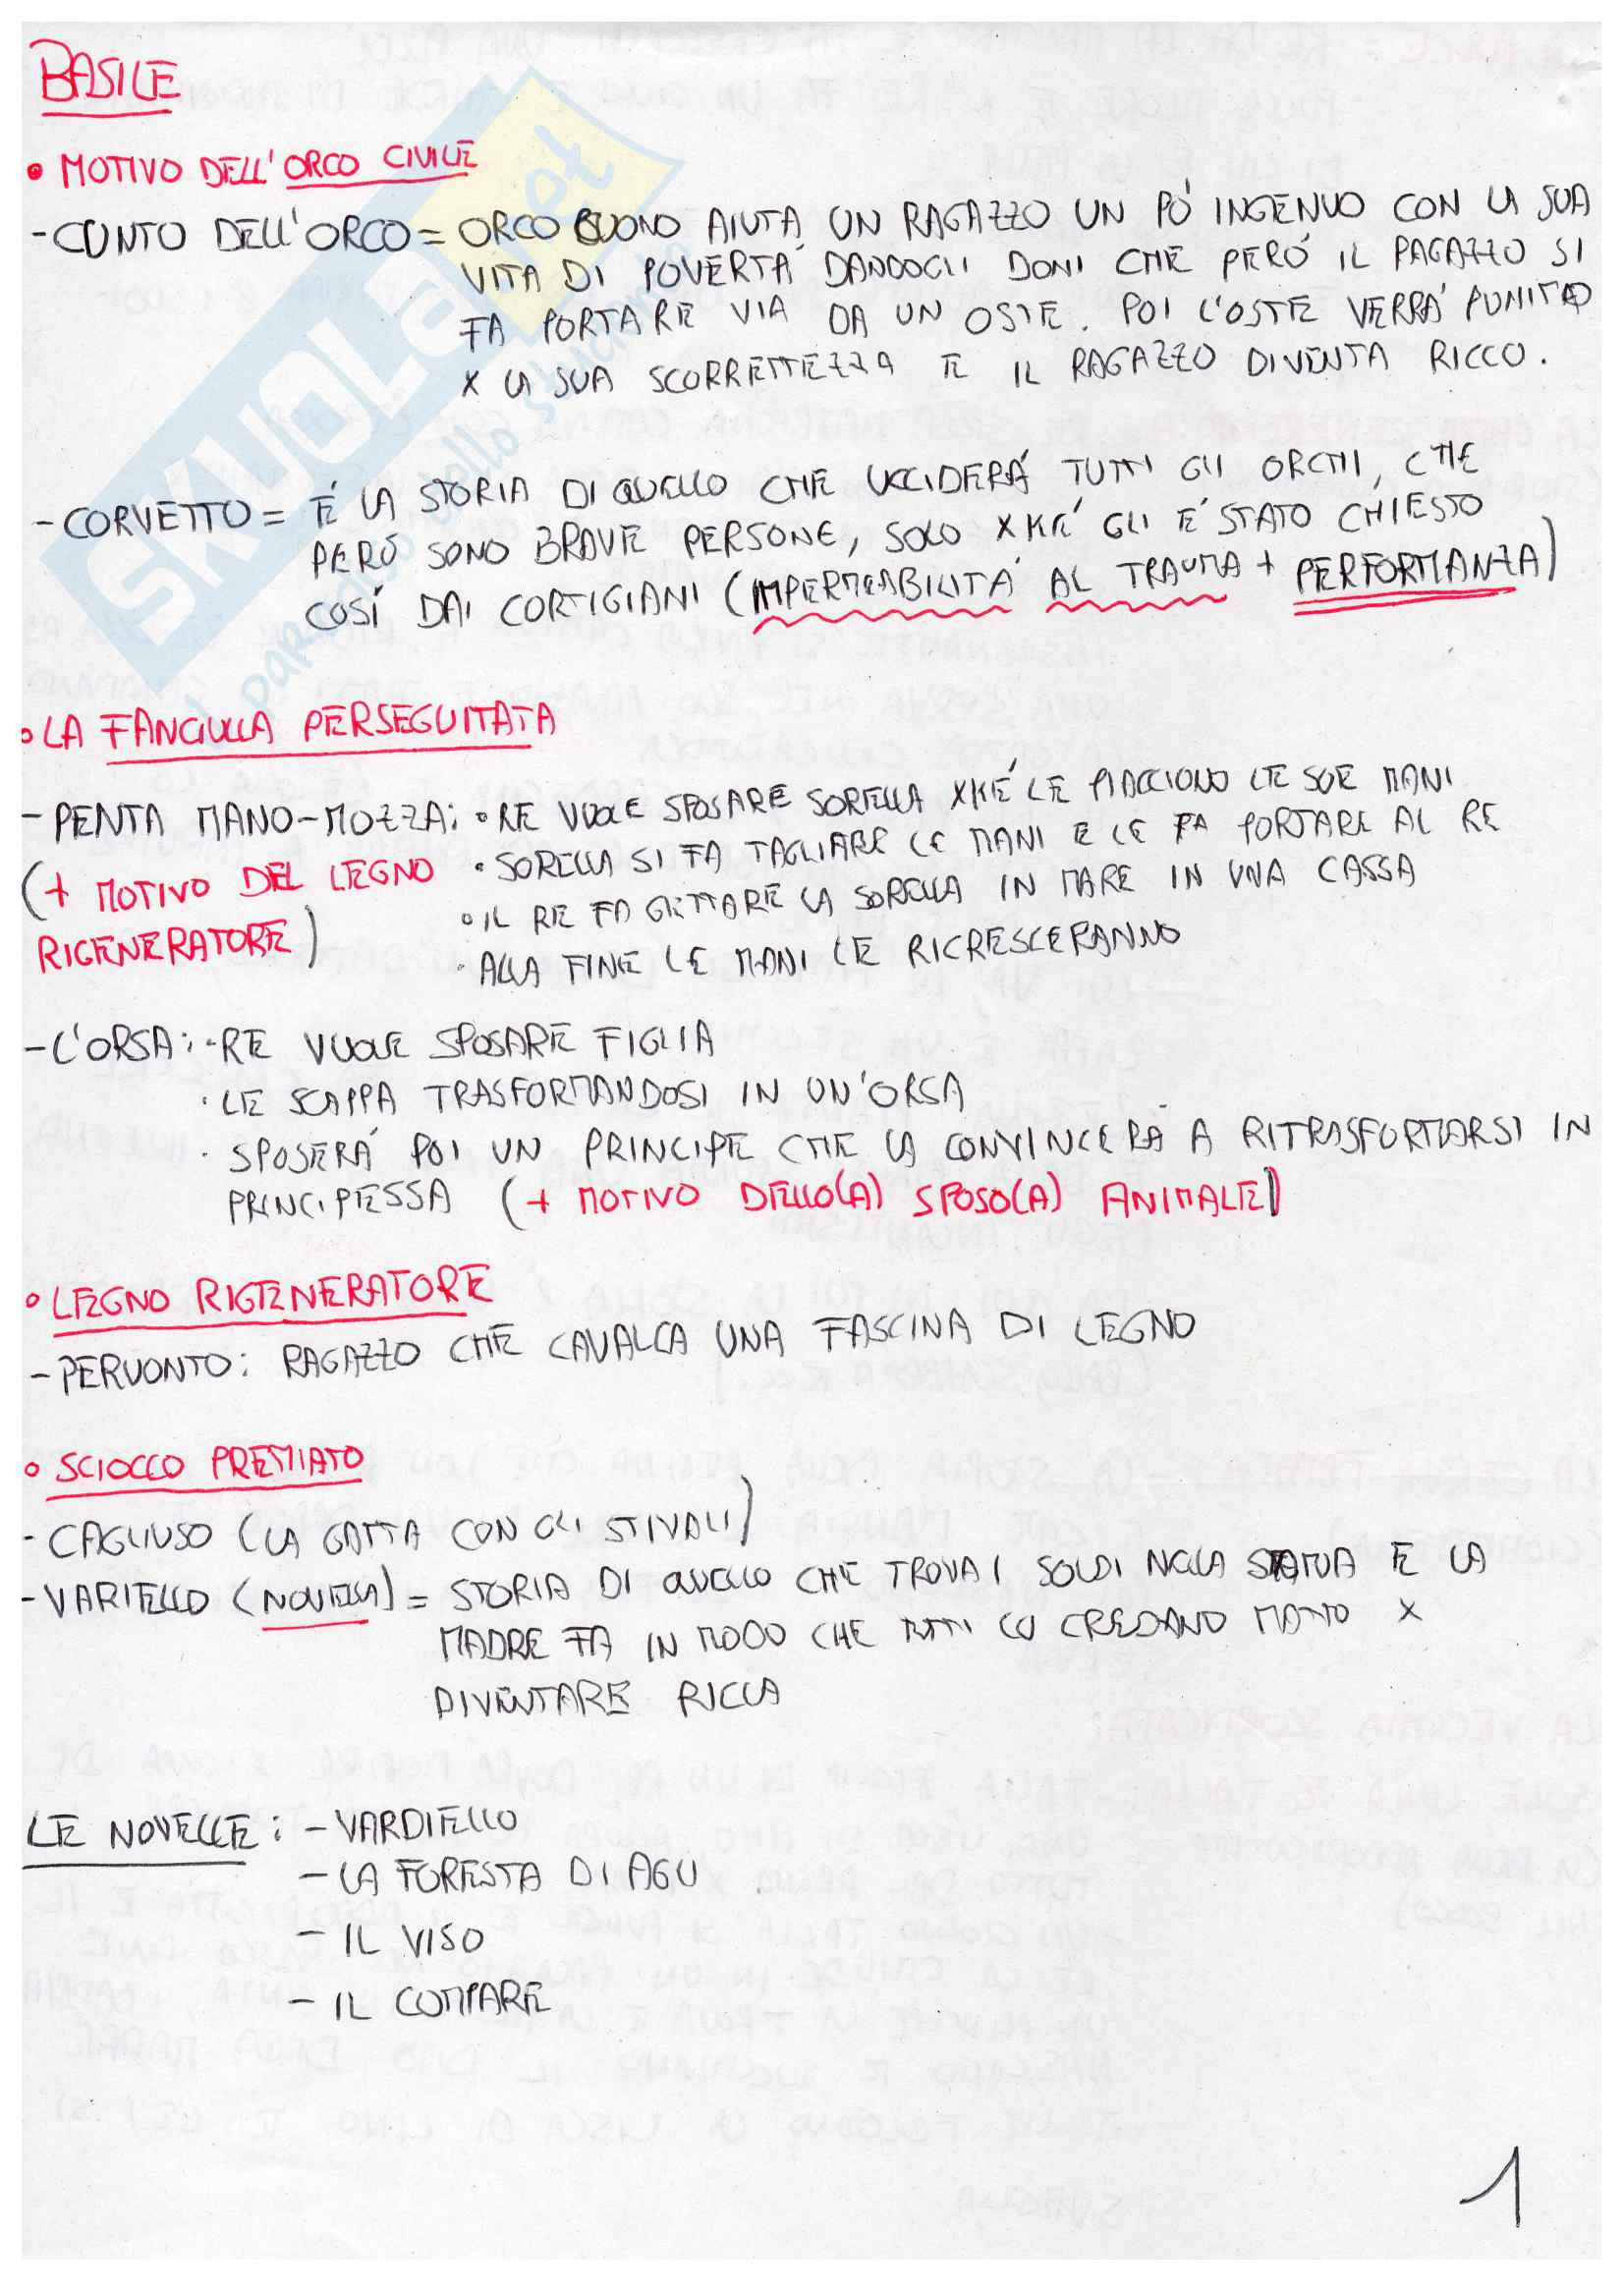 BASILE
• MOTIVO DELL'ORCO CIVILE
- CUNTO DELL'ORCO = ORCO BUONO AIUTA UN RAGAZZO UN PÓ INGENUO CON LA SUA
VITA DI POVERTÁ DANDOGLI DONI CHE PERÓ IL RAGAZZO SI
FA PORTARE VIA DA UN OSTE. POI L'OSTE VERRÁ PUNITO
X LA SUA SCORRETTEZZA E IL RAGAZZO DIVENTA RICCO.
- CORVETTO = É LA STORIA DI QUELLO CHE UCCIDERÁ TUTTI GLI ORCHI, CHE
PERÓ SONO BRAVE PERSONE, SOLO XKÉ GLI É STATO CHIESTO
COSÍ DAI CORTIGIANI (IMPERMEABILITÁ AL TRAUMA + PERFORMANZA)
• LA FANCIULLA PERSEGUITATA
- PENTA MANO-MOZZA: • RE VUOLE SPOSARE SORELLA XKÉ LE PIACCIONO LE SUE MANI
(+ MOTIVO DEL LEGNO • SORELLA SI FA TAGLIARE LE MANI E LE FA PORTARE AL RE
RIGENERATORE) • IL RE FA GETTARE LA SORELLA IN MARE IN UNA CASSA
• ALLA FINE LE MANI LE RICRESCERANNO
- L'ORSA: • RE VUOLE SPOSARE FIGLIA
• LE SCAPPA TRASFORMANDOSI IN UN'ORSA
• SPOSERÁ POI UN PRINCIPE CHE LA CONVINCERÁ A RITRASFORMARSI IN
PRINCIPESSA (+ MOTIVO DELLO(A) SPOSO(A) ANIMALE)
• LEGNO RIGENERATORE
- PERUONTO: RAGAZZO CHE CAVALCA UNA FASCINA DI LEGNO
• SCIOCCO PREMIATO
- CAGLIUSO (LA GATTA CON GLI STIVALI)
- VARIELLO (NOVELLA) = STORIA DI QUELLO CHE TROVA I SOLDI NELLA STATUA E LA
MADRE FA IN MODO CHE TUTTI LO CREDANO MATTO X
DIVENTARE RICCA
LE NOVELLE: - VARDIELLO
- LA FORESTA DI AGLI
- IL VISO
- IL COMPARE
1
SKUOLA.net
il paradiso dello studente